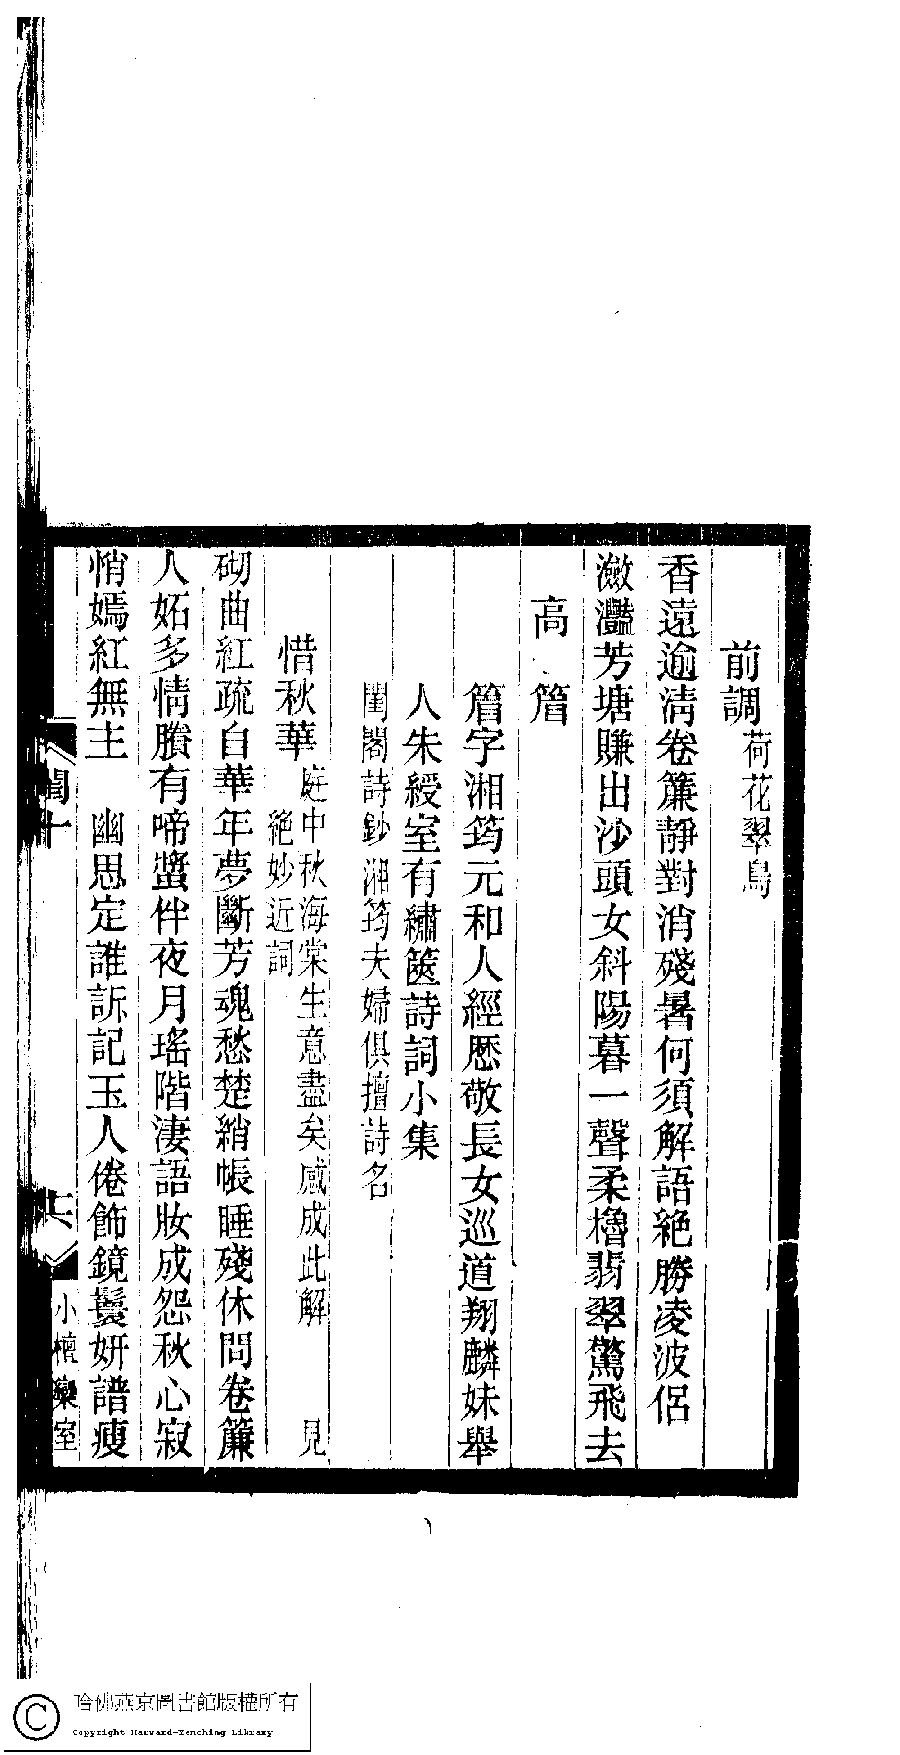 前調荷花翠鳥
香遠逾清卷簾靜對消殘暑何須解語絶勝凌波侶
瀲灩芳塘賺出沙頭女斜陽暮一聲柔櫓翡翠驚飛去
高䈅
䈅字湘筠元和人經歷敬長女巡道翔麟妹舉
人朱綬室有繡篋詩詞小集
閨閣詩鈔湘筠夫婦俱擅詩名
惜秋華庭中秋海棠生意盡矣感成此解 見
絶妙近詞
砌曲紅疏自華年夢斷芳魂愁楚綃帳睡殘休問卷簾
人妬多情賸有啼螿伴夜月瑤階淒語妝成怨秋心寂
悄嫣紅無主 幽思定誰訴記玉人倦飾鏡鬟妍譜瘦
閨十
六
小檀欒室
哈佛燕京圖書館版權所有
Copyright Harvard-Yenching Library